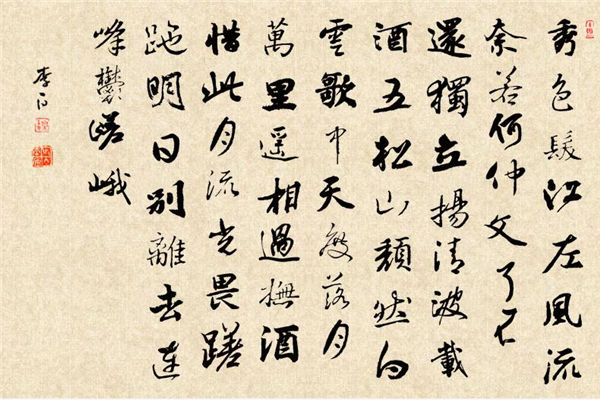 秀色髮江左風流
奈若何仲文了不
還獨立揚清波載
酒五松山頹然白
雲歌中天度落月
萬里遙相過撫酒
惜此月流光畏蹉
跎明日別離去連
峰鬱嵯峨
李白